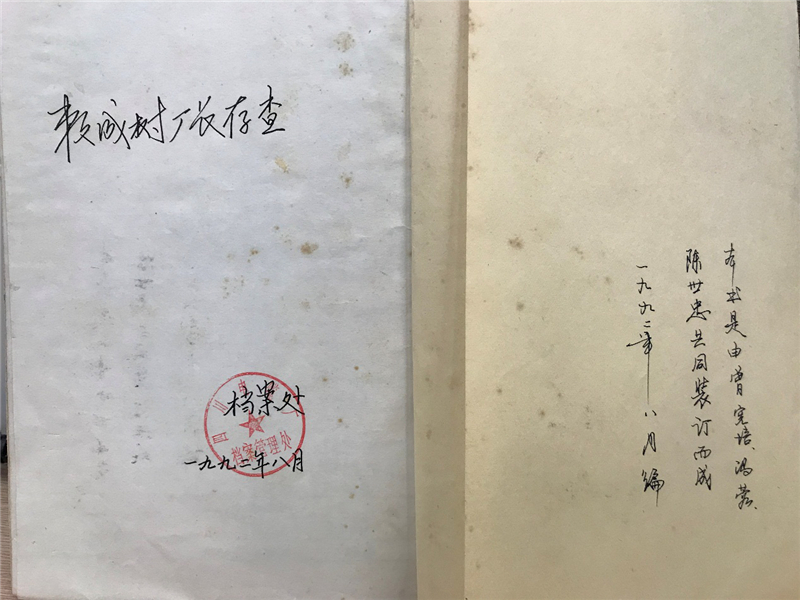 赖成树厂长存查
档案处
档案管理处
一九九二年八月
本书是由曾宪培、冯蓉、
陈世忠共同装订而成
一九九二年八月编